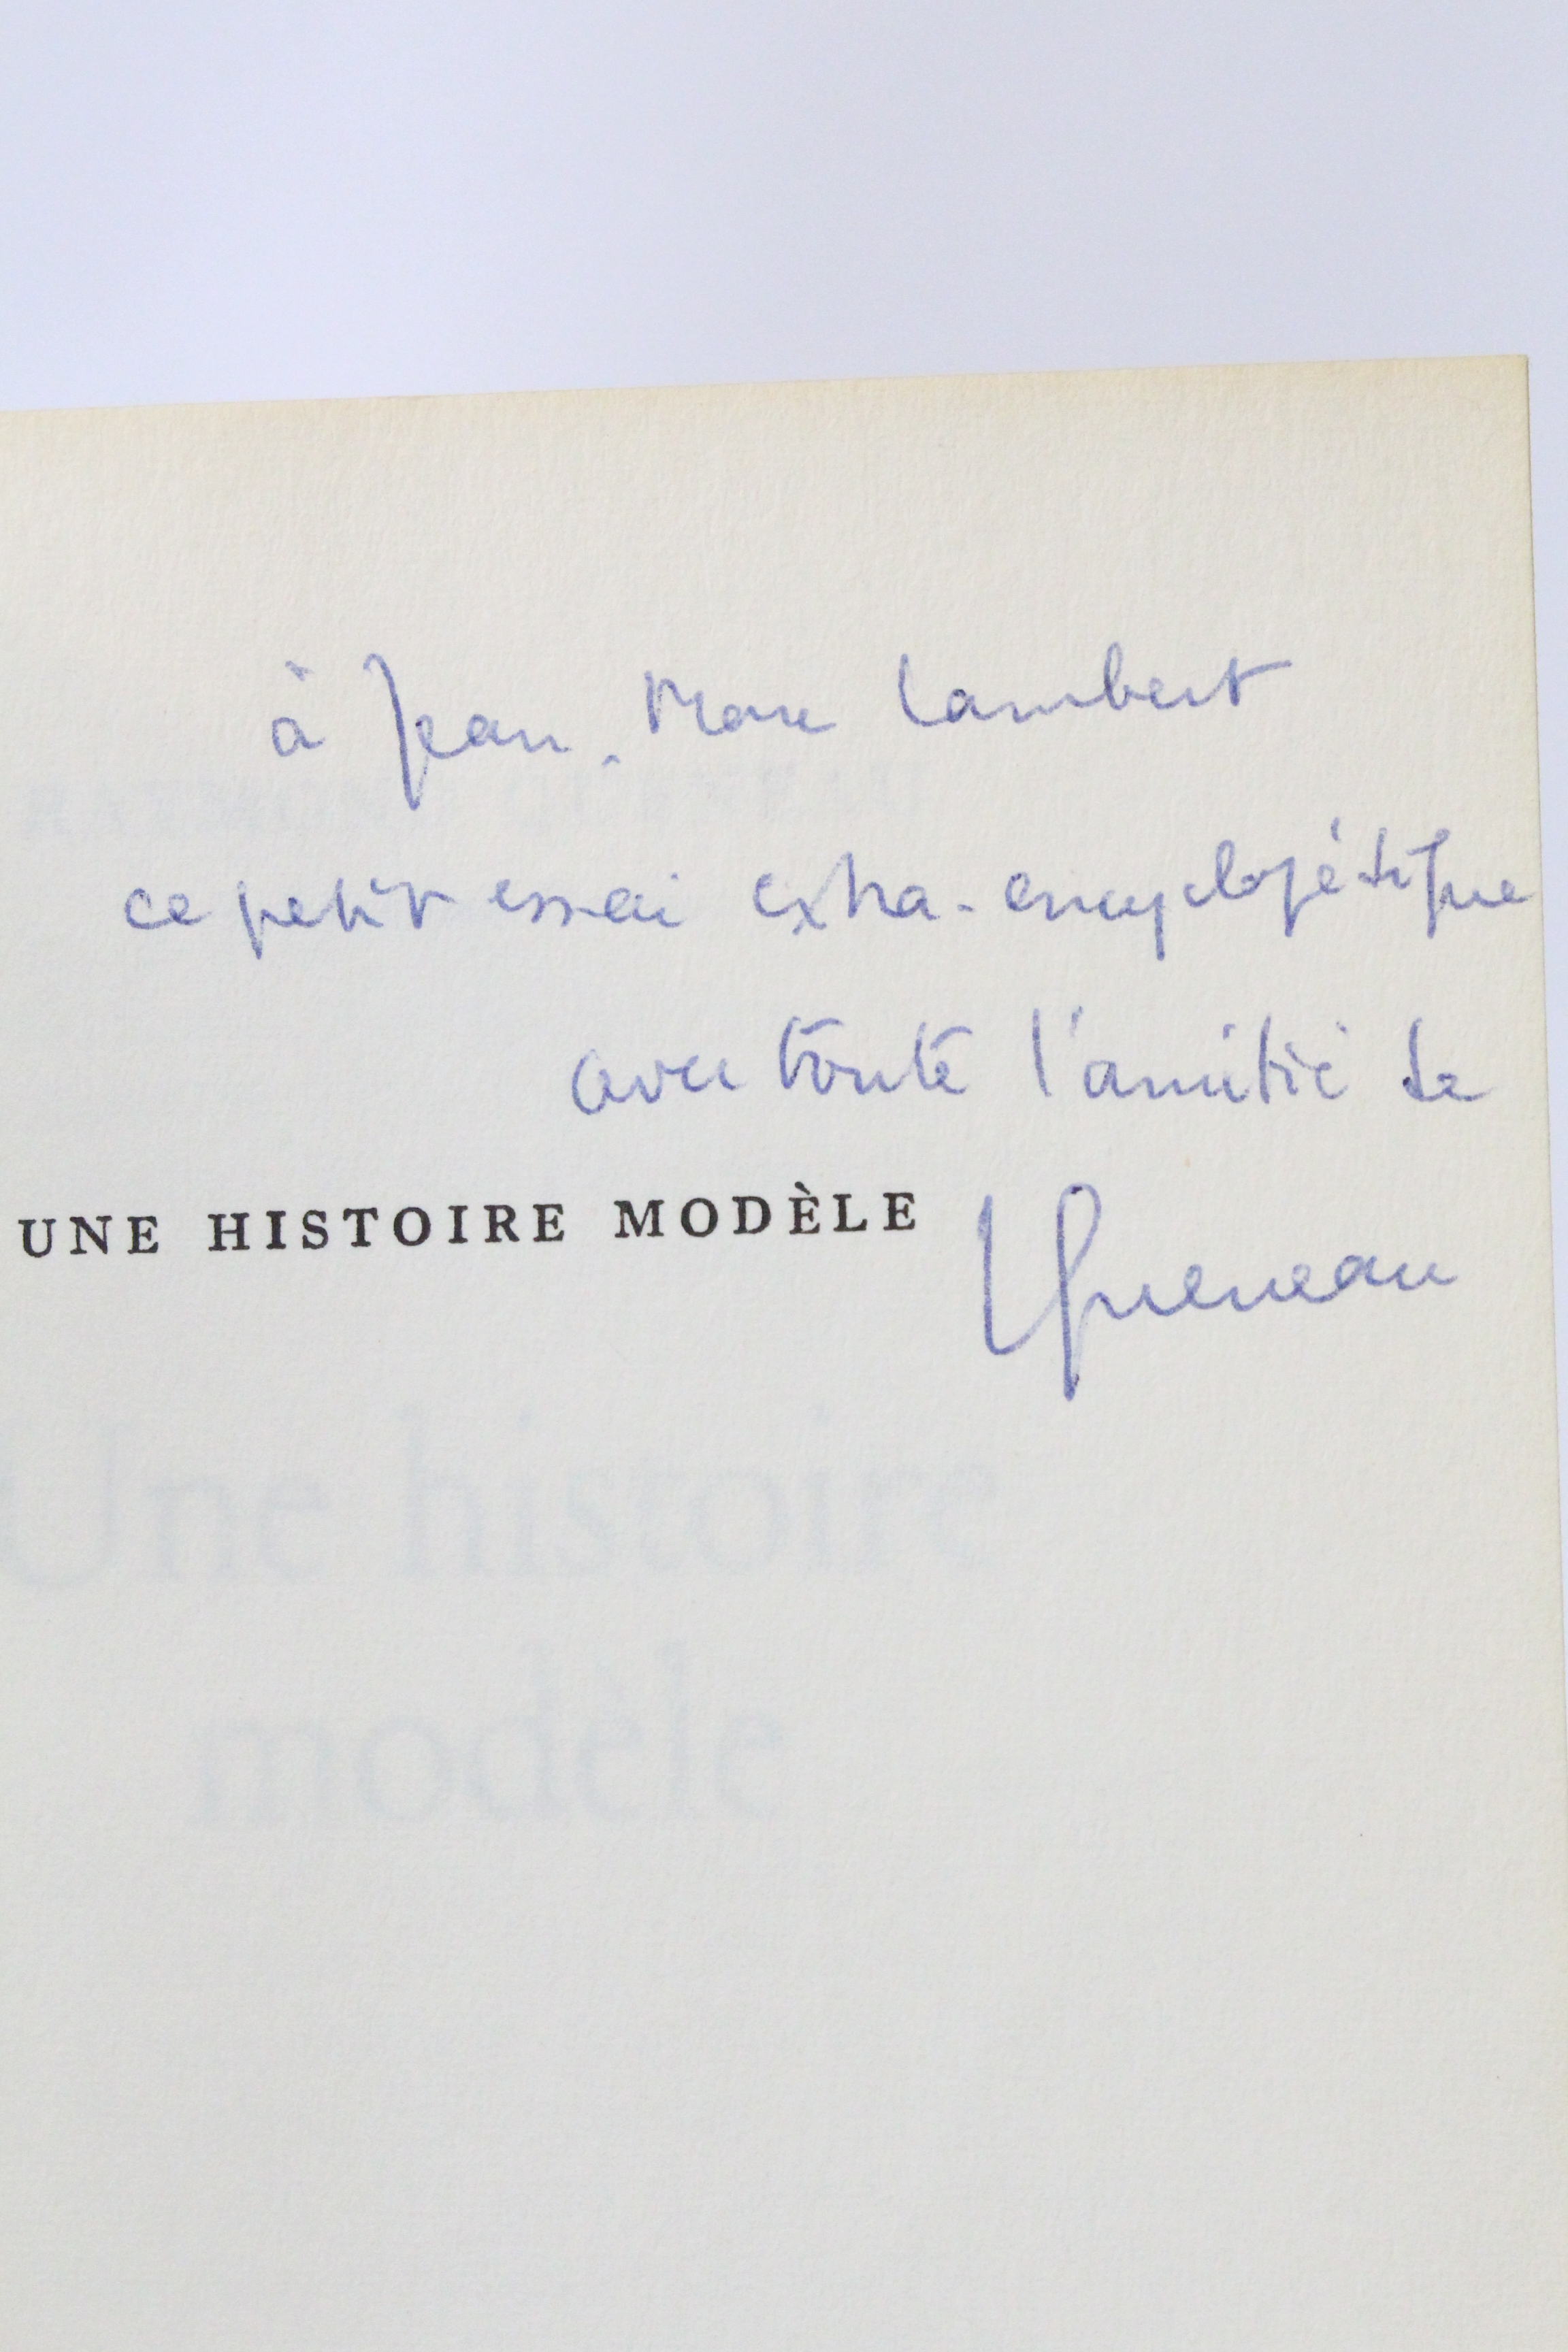 à Jean-Marc Lambert
ce petit essai extra-encyclopédique
avec toute l'amitié de
UNE HISTOIRE MODÈLE
Queneau
Une histoire
modèle